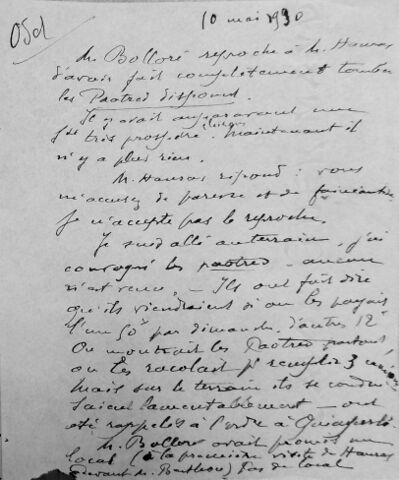 10 mai 1930
Mr Bolloré reproche à M. Hamon
d'avoir fait complètement tomber
les Paotred Dispount.
Il y avait auparavant une
très prospère. Maintenant il
n'y a plus rien.
M. répond : vous
m'accusez de paresse et de fainéantise
Je n'accepte pas le reproche.
Je suis allé au terrain, j'ai
convoqué les paotred - aucun
n'est venu, - Ils ont fait dire
qu'ils viendraient si on les payait
l'un 50 par dimanche, d'autres 12
On montrait les Paotred partout,
on les racolait pr remplir 3
Mais sur le terrain ils se condui
saient lamentablement - ont
été rappelés à l'ordre à Quimperlé.
M. Bolloré avait promis un
local (à la première visite de
devant M. ) Pas de local